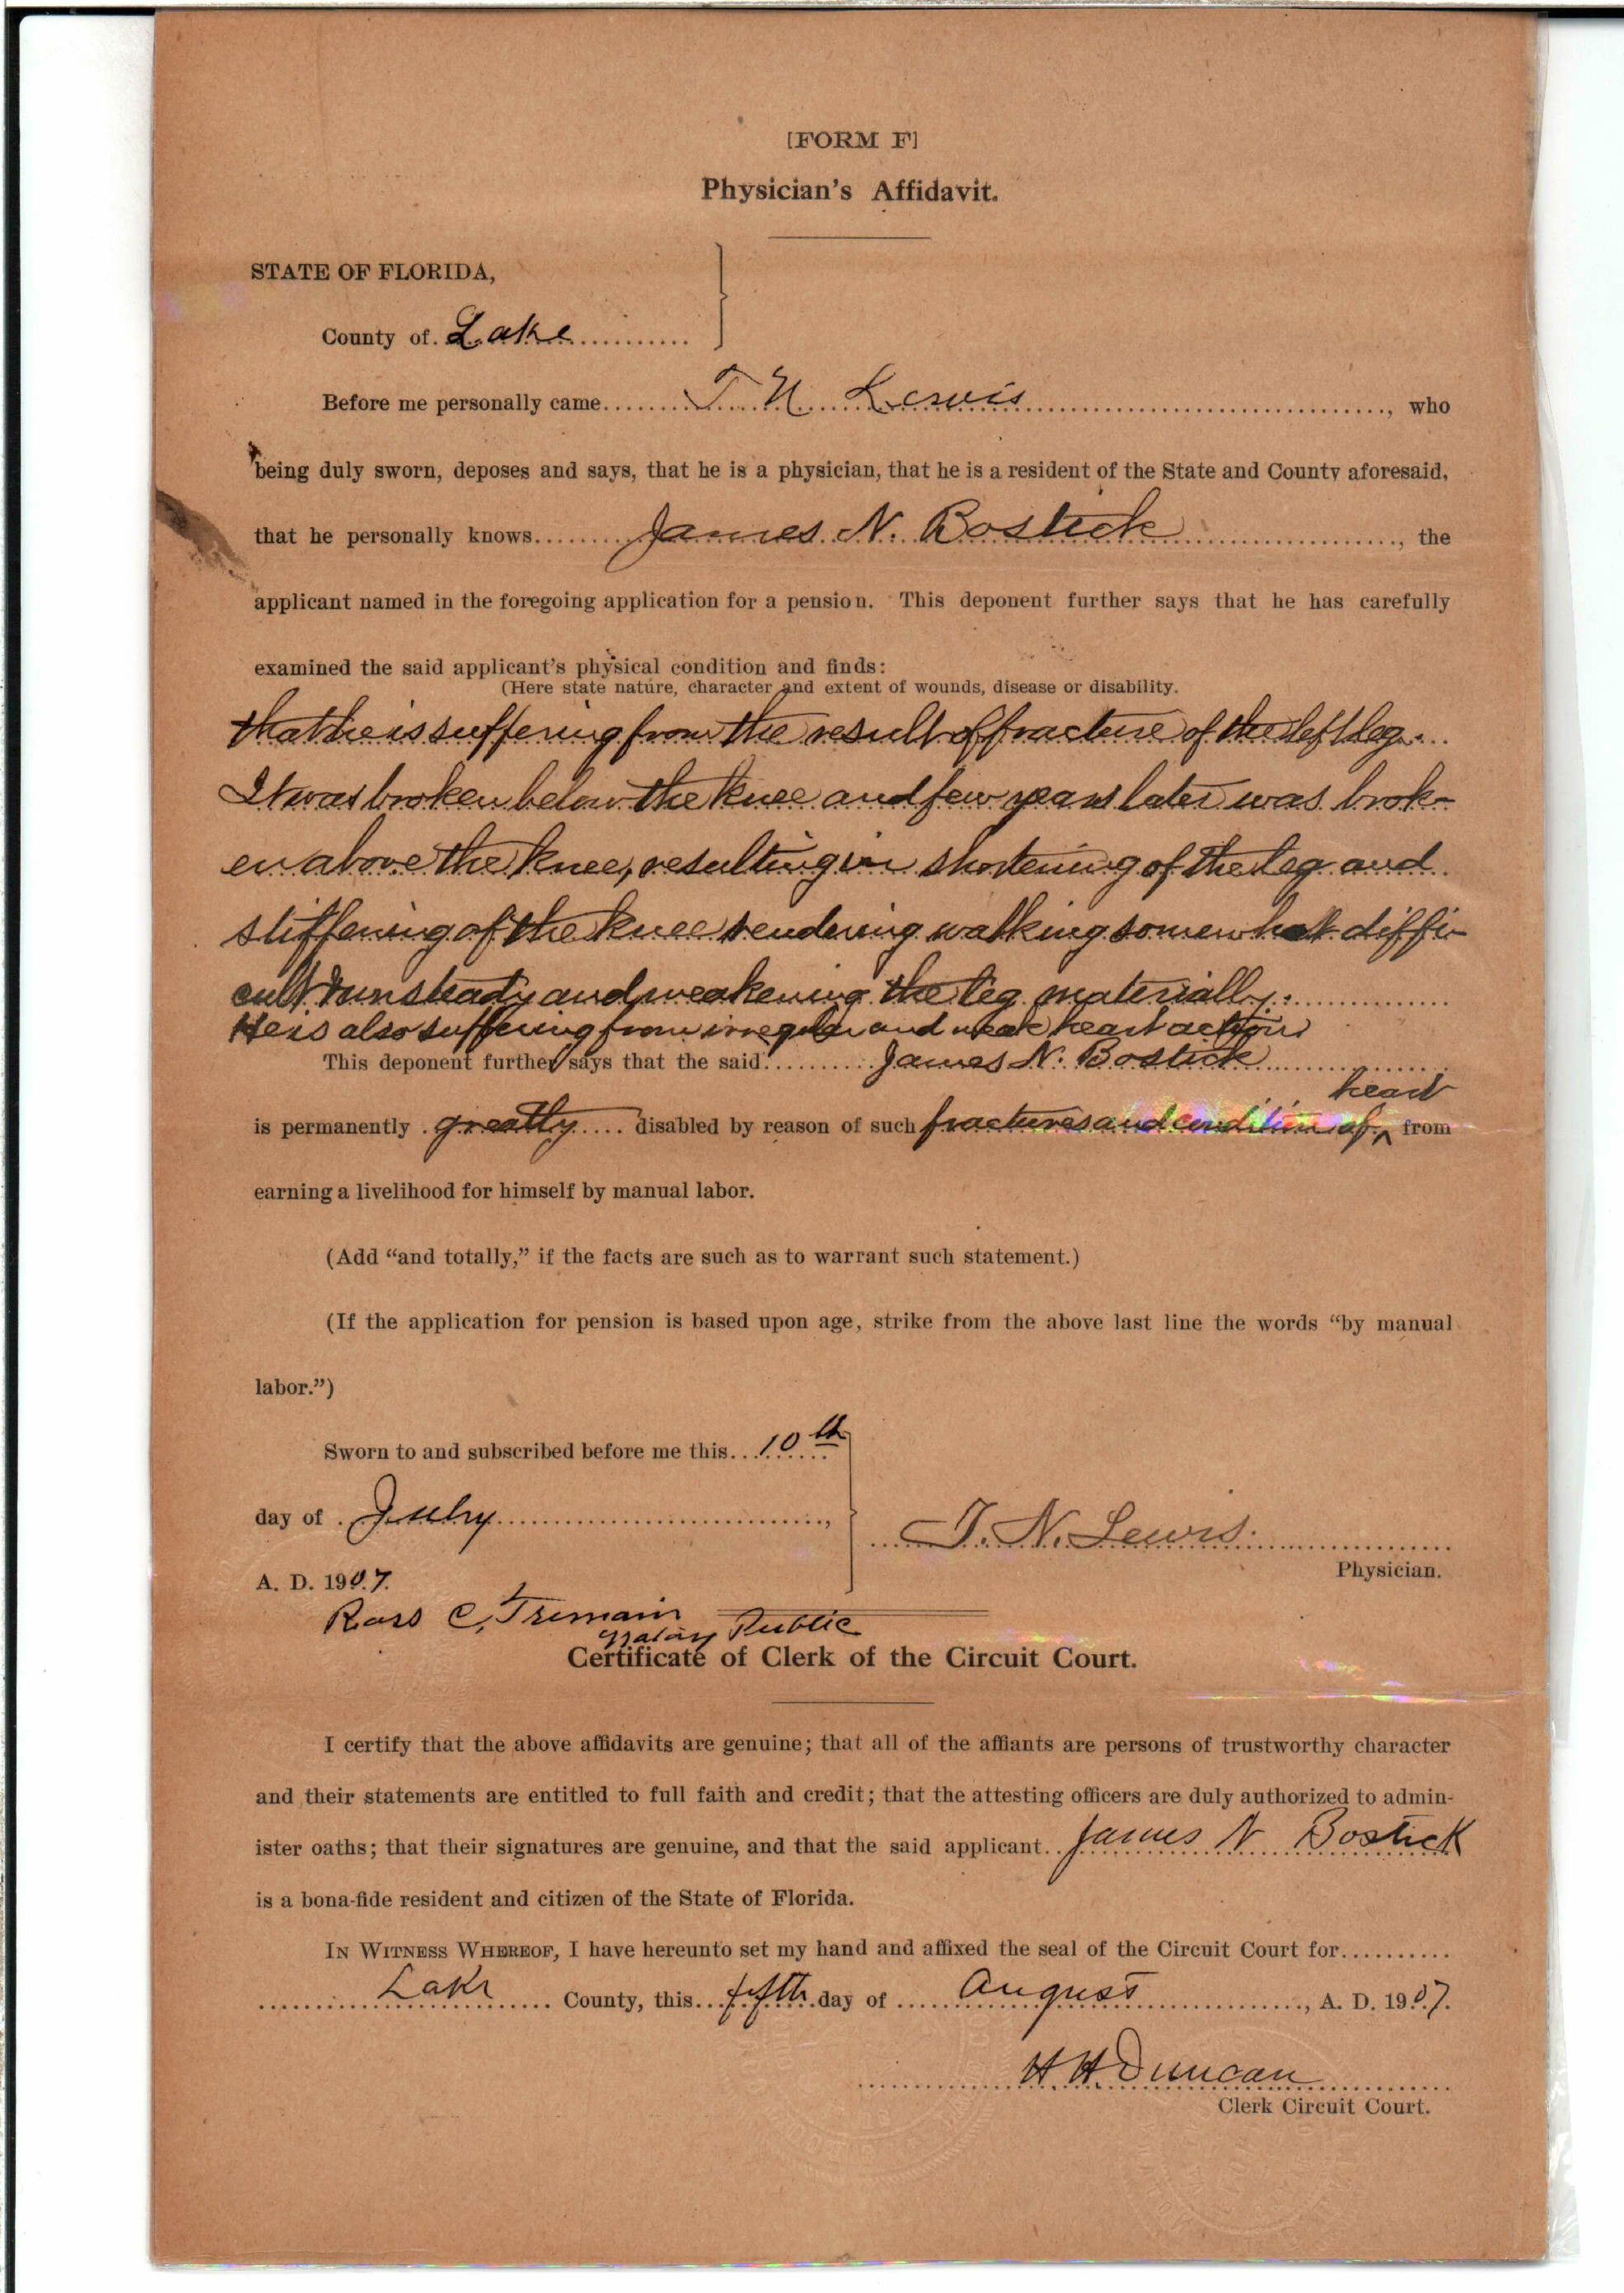 [FORM F]
Physician's Affidavit.
STATE OF FLORIDA,
County of Lake
Before me personally came T. N. Lewis, who
being duly sworn, deposes and says, that he is a physician, that he is a resident of the State and County aforesaid,
that he personally knows James N. Bostick, the
applicant named in the foregoing application for a pension. This deponent further says that he has carefully
examined the said applicant's physical condition and finds:
(Here state nature, character and extent of wounds, disease or disability.
that he is suffering from the result of fracture of the left leg.
It was broken below the knee and few years later was brok-
en above the knee, resulting in shortening of the leg and
stiffening of the knee rendering walking somewhat diffi-
cult & unsteady and weakening the leg materially.
He is also suffering from irregular and weak heart action
This deponent further says that the said James N. Bostick
heart
is permanently greatly disabled by reason of such fractures and condition of ^ from
earning a livelihood for himself by manual labor.
(Add “and totally,” if the facts are such as to warrant such statement.)
(If the application for pension is based upon age, strike from the above last line the words “by manual
labor.”)
Sworn to and subscribed before me this 10th
day of July,
T. N. Lewis.
Physician.
A. D. 1907.
Ross C, Tremain
Notary Public
Certificate of Clerk of the Circuit Court.
I certify that the above affidavits are genuine; that all of the affiants are persons of trustworthy character
and their statements are entitled to full faith and credit; that the attesting officers are duly authorized to admin-
ister oaths; that their signatures are genuine, and that the said applicant James N Bostick
is a bona-fide resident and citizen of the State of Florida.
IN WITNESS WHEREOF, I have hereunto set my hand and affixed the seal of the Circuit Court for
Lake County, this fifth day of August, A. D. 1907.
H. H. Duncan
Clerk Circuit Court.